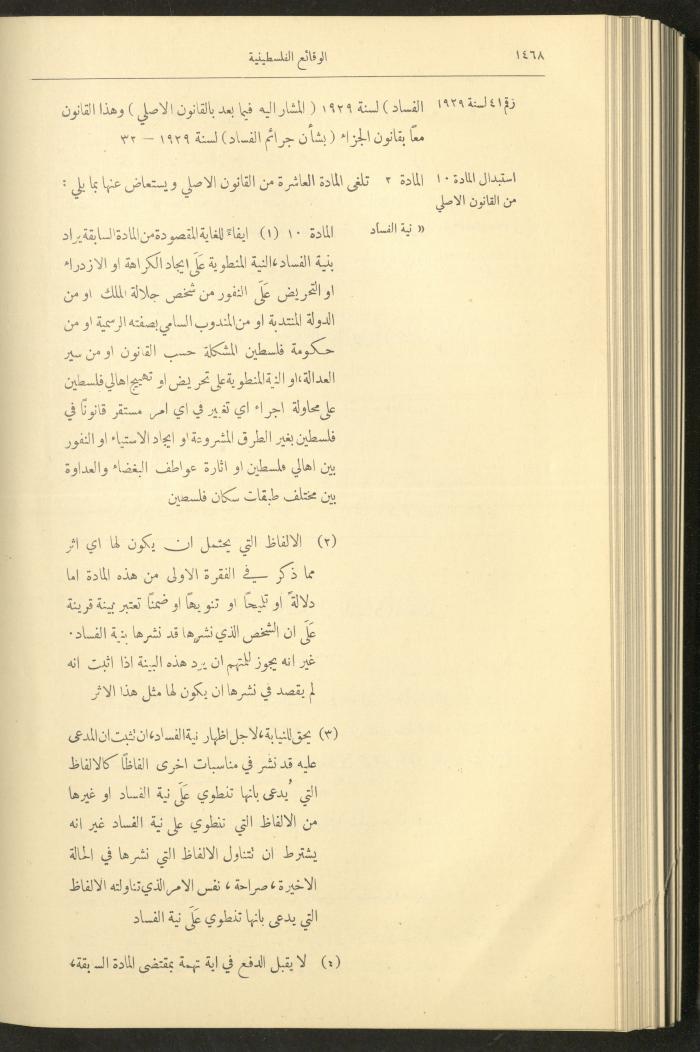 ١٤٦٨
الوقائع الفلسطينية
رقم ٤١ لسنة ١٩٢٩
الفساد ) لسنة ١٩٢٩ ( المشار اليه فيما بعد بالقانون الاصلي ) وهذا القانون
معاً بقانون الجزاء ( بشأن جرائم الفساد ) لسنة ١٩٢٩ — ٣٢
استبدال المادة ١٠
من القانون الاصلي
المادة ٢ تلغى المادة العاشرة من القانون الاصلي ويستعاض عنها بما يلي :
« نية الفساد
المادة ١٠ (١) ايفاءً للغاية المقصودة من المادة السابقة يراد
بنية الفساد، النية المنطوية عَلَى ايجاد الكراهة او الازدراء
او التحريض عَلَى النفور من شخص جلالة الملك او من
الدولة المنتدبة او من المندوب السامي بصفته الرسمية او من
حكومة فلسطين المشكلة حسب القانون او من سير
العدالة، او النية المنطوية على تحريض او تهييج اهالي فلسطين
على محاولة اجراء اي تغيير في اي امر مستقر قانوناً في
فلسطين بغير الطرق المشروعة او ايجاد الاستياء او النفور
بين اهالي فلسطين او اثارة عواطف البغضاء والعداوة
بين مختلف طبقات سكان فلسطين
(٢) الالفاظ التي يحتمل ان يكون لها اي اثر
مما ذكر في الفقرة الاولى من هذه المادة اما
دلالةً او تلميحاً او تنويهاً او ضمناً تعتبر بينة قرينة
عَلَى ان الشخص الذي نشرها قد نشرها بنية الفساد.
غير انه يجوز للمتهم ان يرد هذه البينة اذا اثبت انه
لم يقصد في نشرها ان يكون لها مثل هذا الاثر
(٣) يحق للنيابة، لاجل اظهار نية الفساد، ان تثبت ان المدعى
عليه قد نشر في مناسبات اخرى الفاظاً كالالفاظ
التي يُدعى بانها تنطوي عَلَى نية الفساد او غيرها
من الالفاظ التي تنطوي على نية الفساد غير انه
يشترط ان تتناول الالفاظ التي نشرها في الحالة
الاخيرة، صراحة، نفس الامر الذي تناولته الالفاظ
التي يدعى بانها تنطوي عَلَى نية الفساد
(٤) لا يقبل الدفع في اية تهمة بمقتضى المادة السابقة،